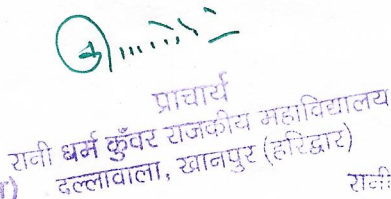 प्राचार्य
रानी धर्म कुँवर राजकीय महाविद्यालय
दल्लावाला, खानपुर (हरिद्वार)
रानी